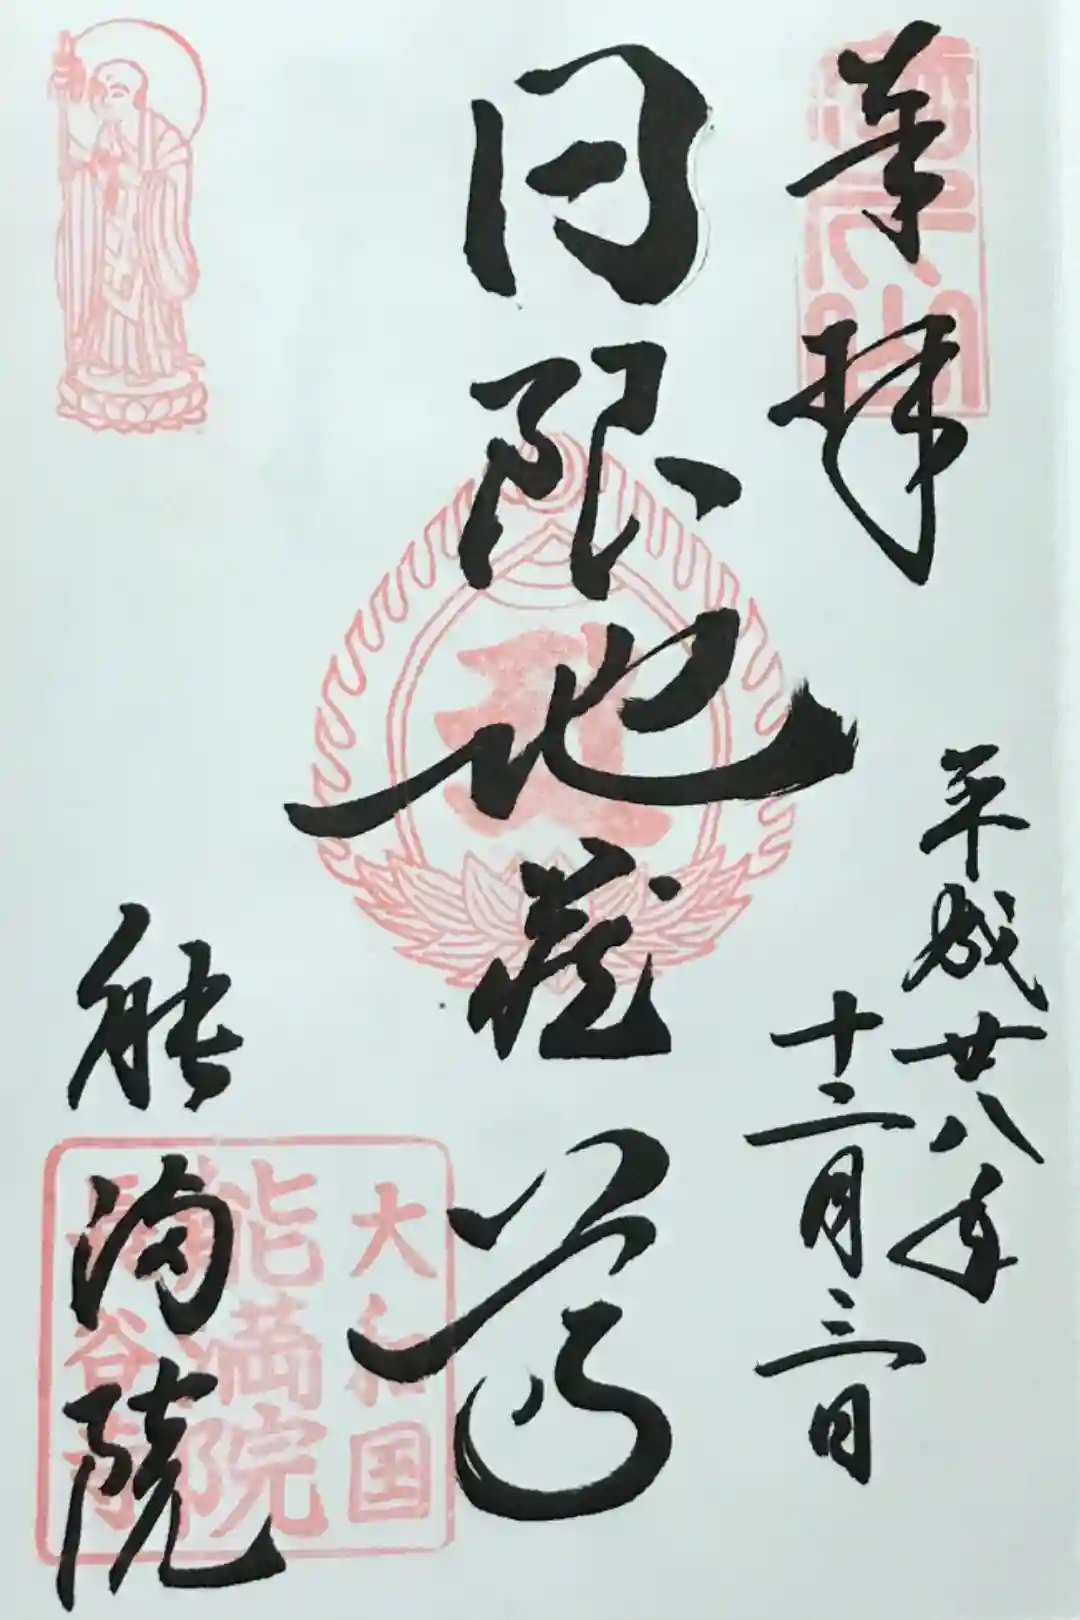 奉拝
平成廿八年
十二月三日
日限地蔵尊
能満院
大和国
能満院
長谷寺